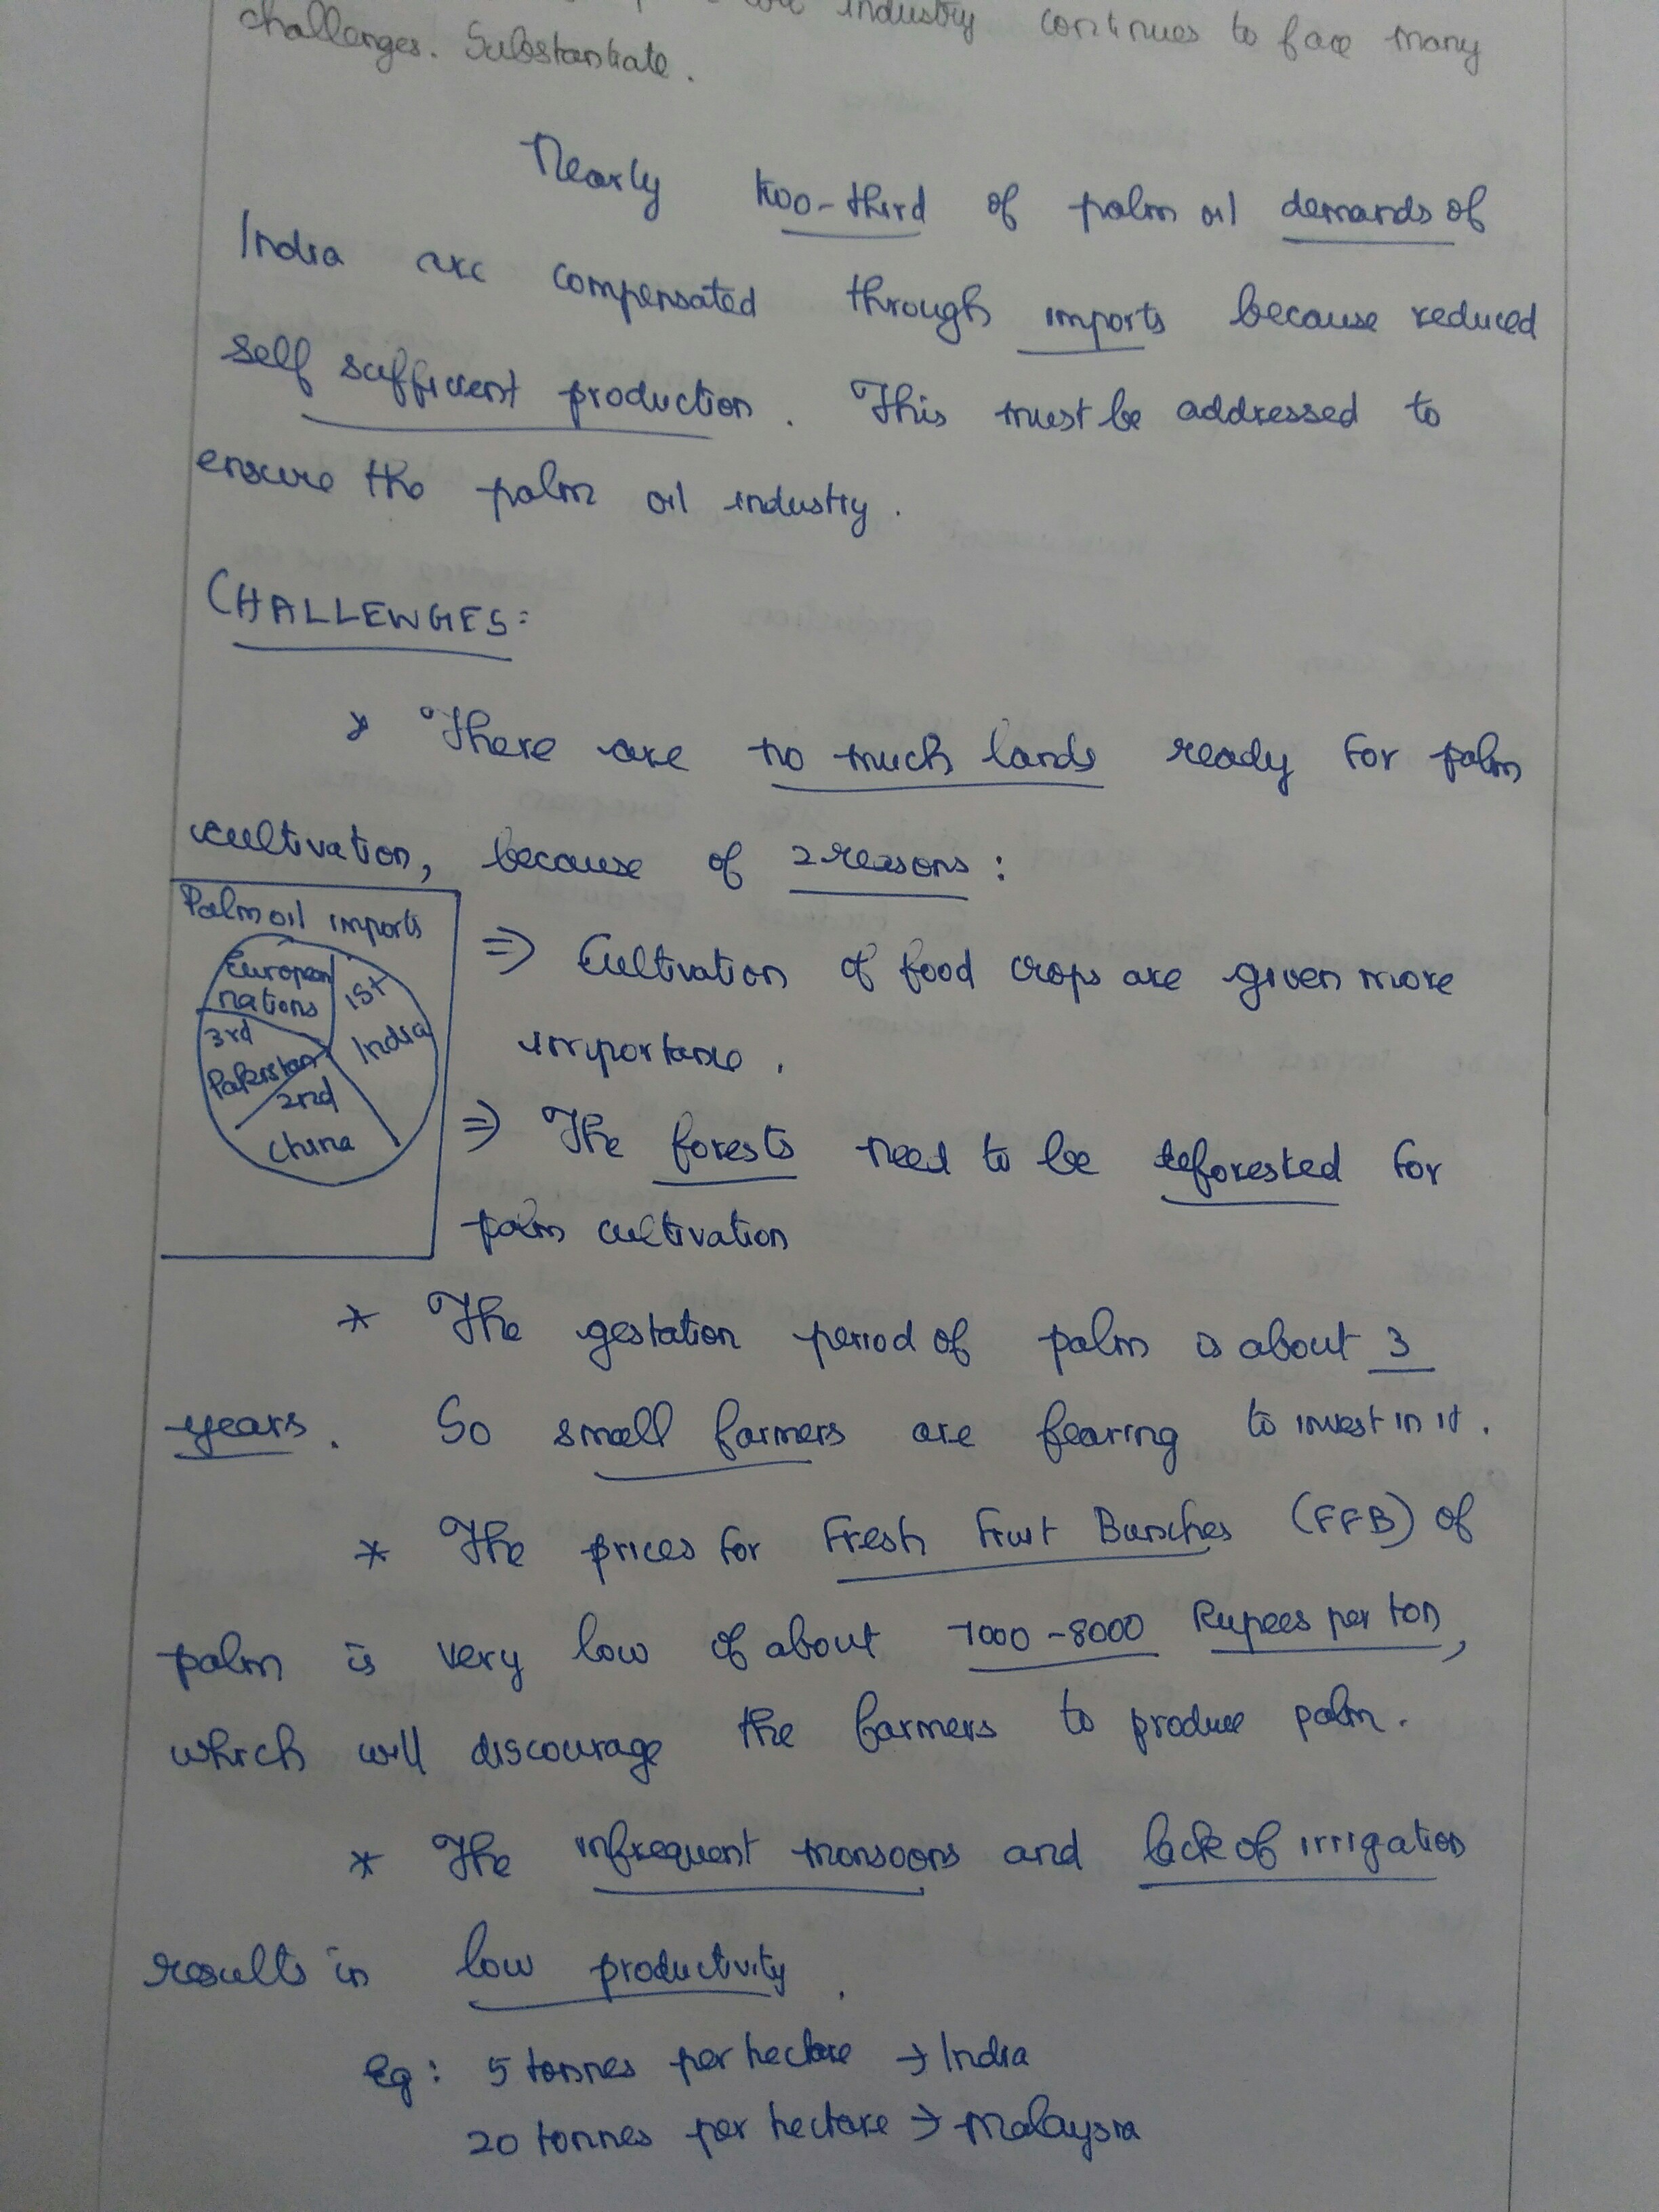 industry continues to face many
challenges. Substantiate.
Nearly two-third of palm oil demands of
India are compensated through imports because reduced
self sufficient production. This must be addressed to
ensure the palm oil industry.
CHALLENGES:
* There are no much lands ready for palm
cultivation, because of 2 reasons:
Palm oil imports
European
nations
1st
India
3rd
Pakistan
2nd
China
⇒ Cultivation of food crops are given more
importance.
⇒ The forests need to be deforested for
palm cultivation
* The gestation period of palm is about 3
years. So small farmers are fearing to invest in it.
* The prices for Fresh Fruit Bunches (FFB) of
palm is very low of about 7000-8000 Rupees per ton,
which will discourage the farmers to produce palm.
* The infrequent monsoons and lack of irrigation
results in low productivity.
Eg: 5 tonnes per hectare → India
20 tonnes per hectare → Malaysia